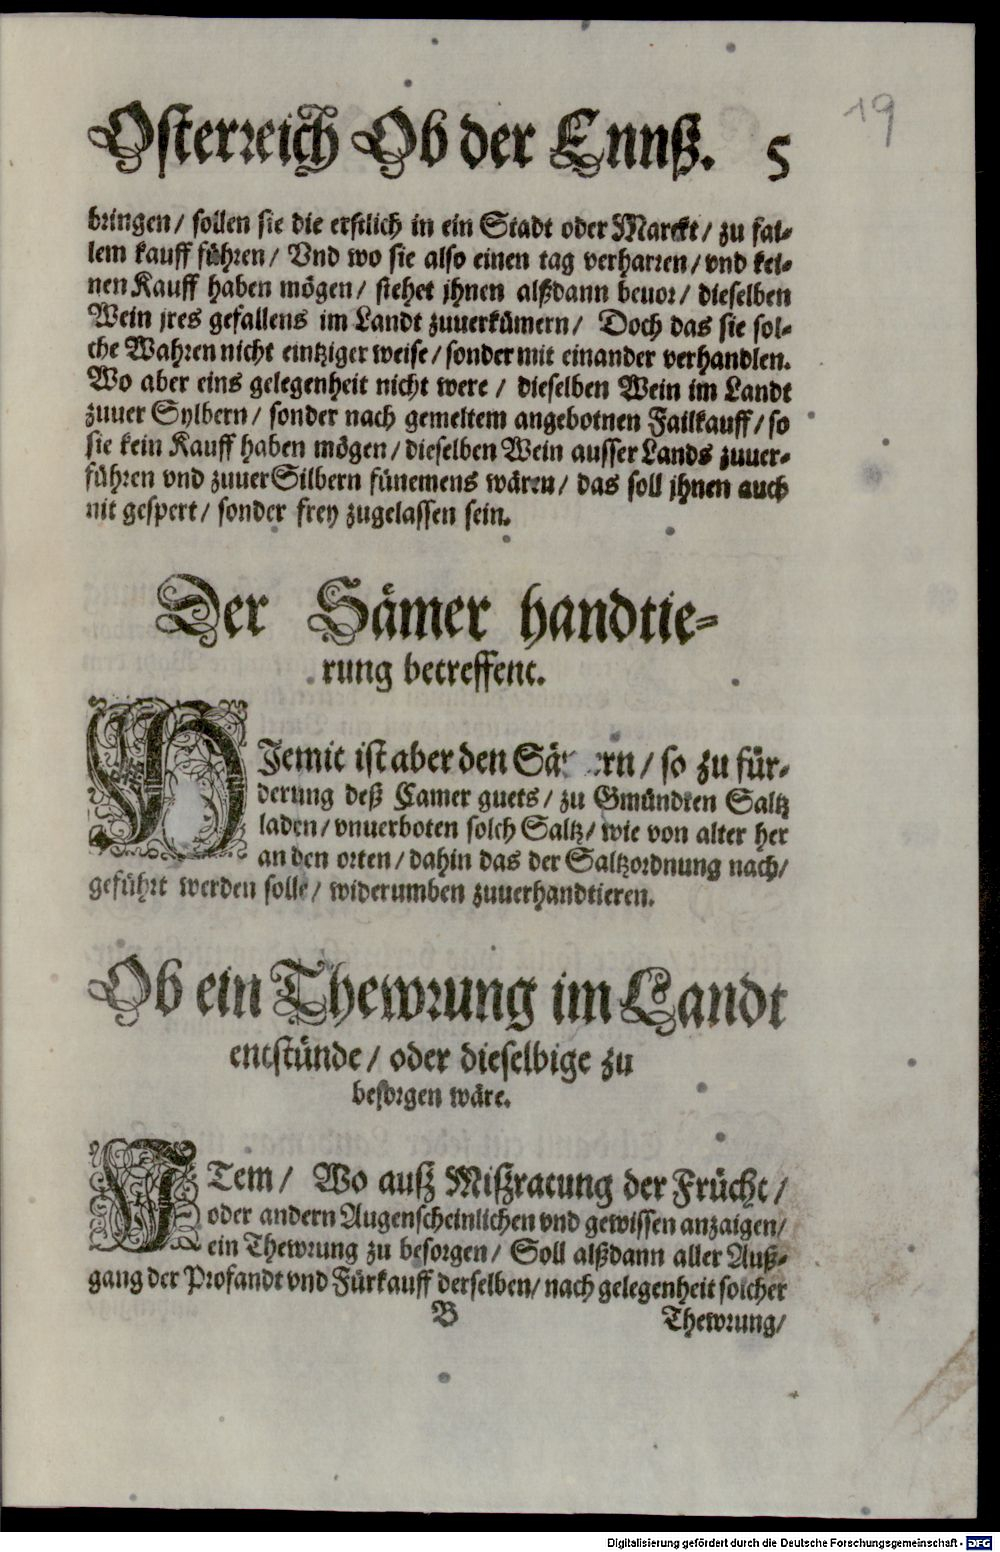 Osterreich Ob der Ennß. 5
19
bringen/ sollen sie die erstlich in ein Stadt oder Marckt/ zu fai-
lem kauff führen/ Vnd wo sie also einen tag verharren/ vnd kei-
nen Kauff haben mögen/ stehet jhnen alßdann beuor/ dieselben
Wein jres gefallens im Landt zuuerkümern/ Doch das sie sol-
che Wahren nicht eintziger weise/ sonder mit einander verhandlen.
Wo aber eins gelegenheit nicht were/ dieselben Wein im Landt
zuuer Sylbern/ sonder nach gemeltem angebotnen Failkauff/ so
sie kein Kauff haben mögen/ dieselben Wein ausser Lands zuuer-
führen vnd zuuer Silbern fünemens wären/ das soll jhnen auch
nit gespert/ sonder frey zugelassen sein.
Der Sämer handtie-
rung betreffent.
HJemit ist aber den Sä rn/ so zu für-
derung deß Camer guets/ zu Gmündten Saltz
laden/ vnuerboten solch Saltz/ wie von alter her
an den orten/ dahin das der Saltzordnung nach/
geführt werden solle/ widerumben zuuerhandtieren.
Ob ein Thewrung im Landt
entstünde/ oder dieselbige zu
besorgen wäre.
ITem/ Wo auß Mißratung der Frücht/
oder andern Augenscheinlichen vnd gewissen anzaigen/
ein Thewrung zu besorgen/ Soll alßdann aller Auß-
gang der Profandt vnd Fürkauff derselben/ nach gelegenheit solcher
B Thewrung/
Digitalisierung gefördert durch die Deutsche Forschungsgemeinschaft - DFG